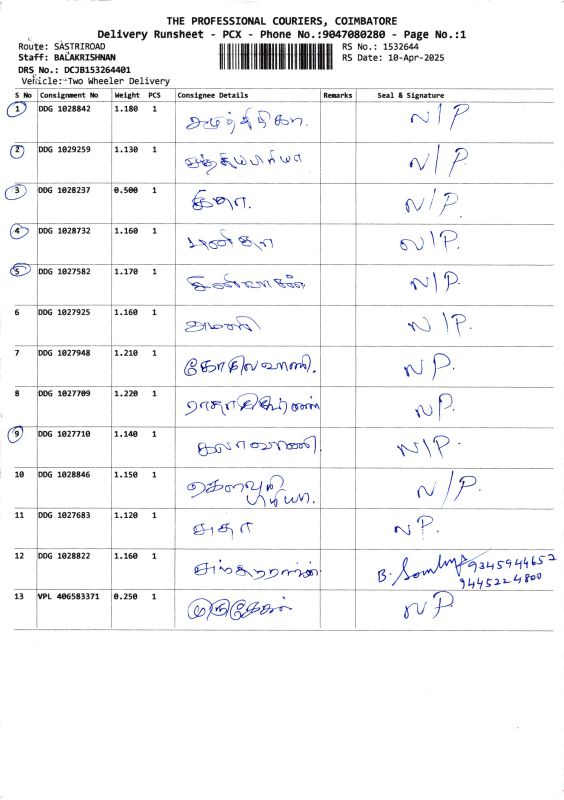 THE PROFESSIONAL COURIERS, COIMBATORE
Delivery Runsheet - PCX - Phone No.:9047080280 - Page No.:1
Route: SASTRIROAD
Staff: BALAKRISHNAN
DRS No.: DCJB153264401
Vehicle: Two Wheeler Delivery
RS No.: 1532644
RS Date: 10-Apr-2025
S No Consignment No Weight PCS Consignee Details Remarks Seal & Signature
1 DDG 1028842 1.180 1 N/P
2 DDG 1029259 1.130 1 N/P
3 DDG 1028237 0.500 1 N/P.
4 DDG 1028732 1.160 1 N/P.
5 DDG 1027582 1.170 1 N/P.
6 DDG 1027925 1.160 1 N/P.
7 DDG 1027948 1.210 1 கோகிலவாணி. NP.
8 DDG 1027709 1.220 1 NP.
9 DDG 1027710 1.140 1 கலாவாணி. N/P.
10 DDG 1028846 1.150 1 N/P.
11 DDG 1027683 1.120 1 சுதா NP.
12 DDG 1028822 1.160 1 B. 9345944652
9445224800
13 VPL 406583371 0.250 1 முருகேசன் NP